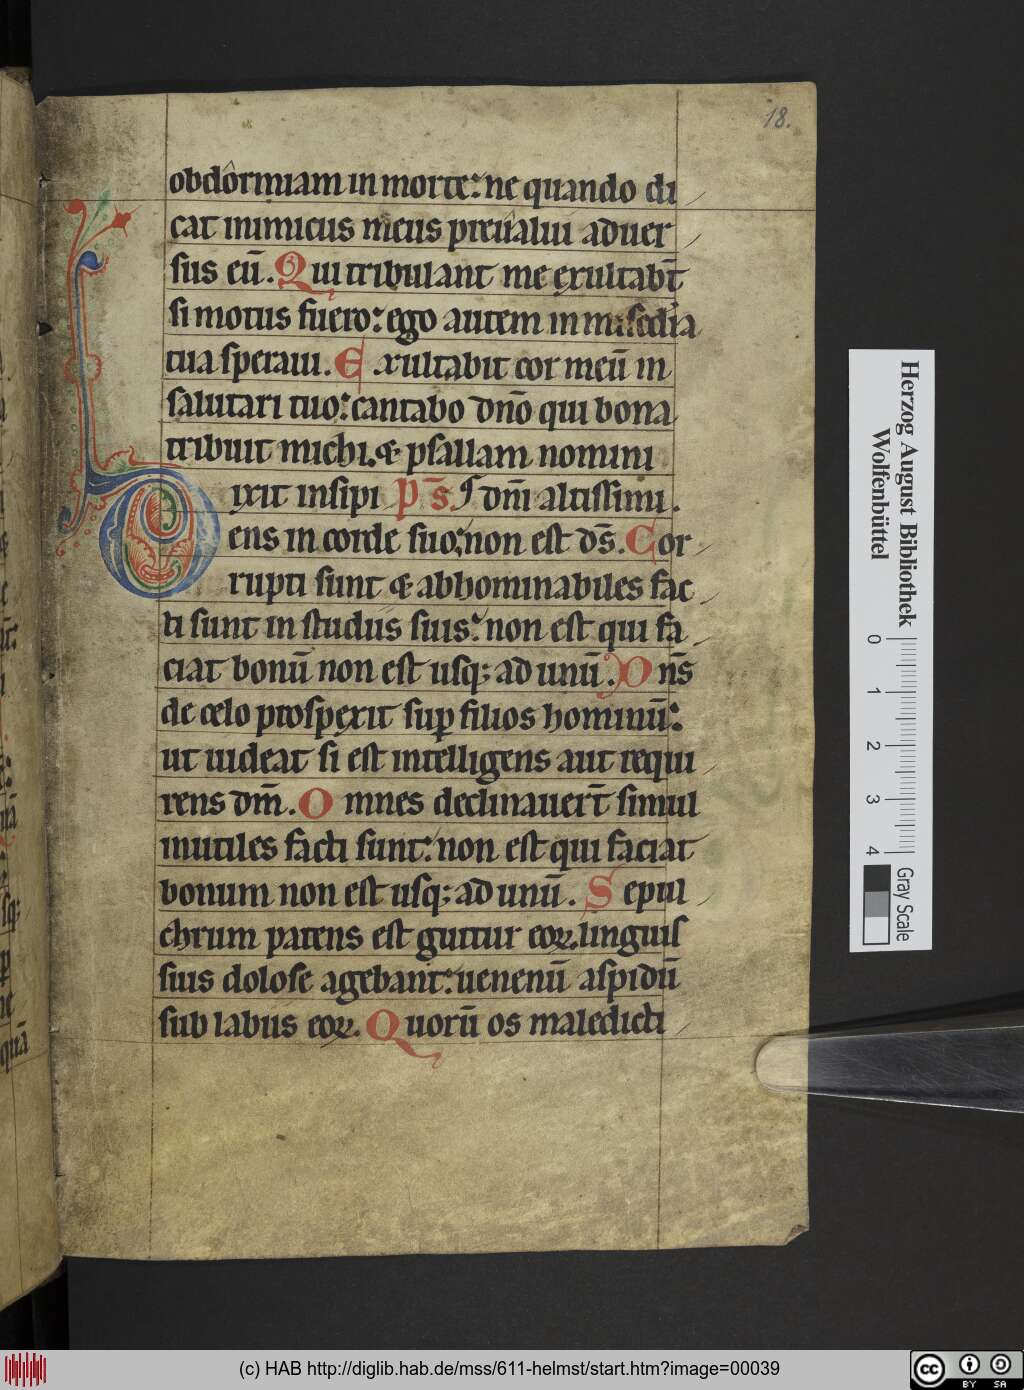 18.
obdormiam in morte: ne quando di
cat inimicus meus preualui aduer
sus eū. Qui tribulant me exultabt̄
si motus fuero: ego autem in misedia
tua speraui. Exultabit cor meū in
salutari tuo: cantabo dn̄o qui bona
tribuit michi. & psallam nomini
ixit insipi p̄s. dn̄i altissimi.
ens in corde suo: non est ds̄. Cor
rupti sunt & abhominabiles fac
ti sunt in studiis suis: non est qui fa
ciat bonū non est usq; ad unū. Dn̄s
de celo prospexit sup filios hominū:
ut uideat si est intelligens aut requi
rens dm̄. Omnes declinauert̄ simul
inutiles facti sunt: non est qui faciat
bonum non est usq; ad unū. Sepul
chrum patens est guttur eoꝝ. linguis
suis dolose agebant: uenenū aspidū
sub labiis eoꝝ. Quorū os maledicti
Herzog August Bibliothek
Wolfenbüttel
0 1 2 3 4
Gray Scale
(c) HAB http://diglib.hab.de/mss/611-helmst/start.htm?image=00039
cc BY SA